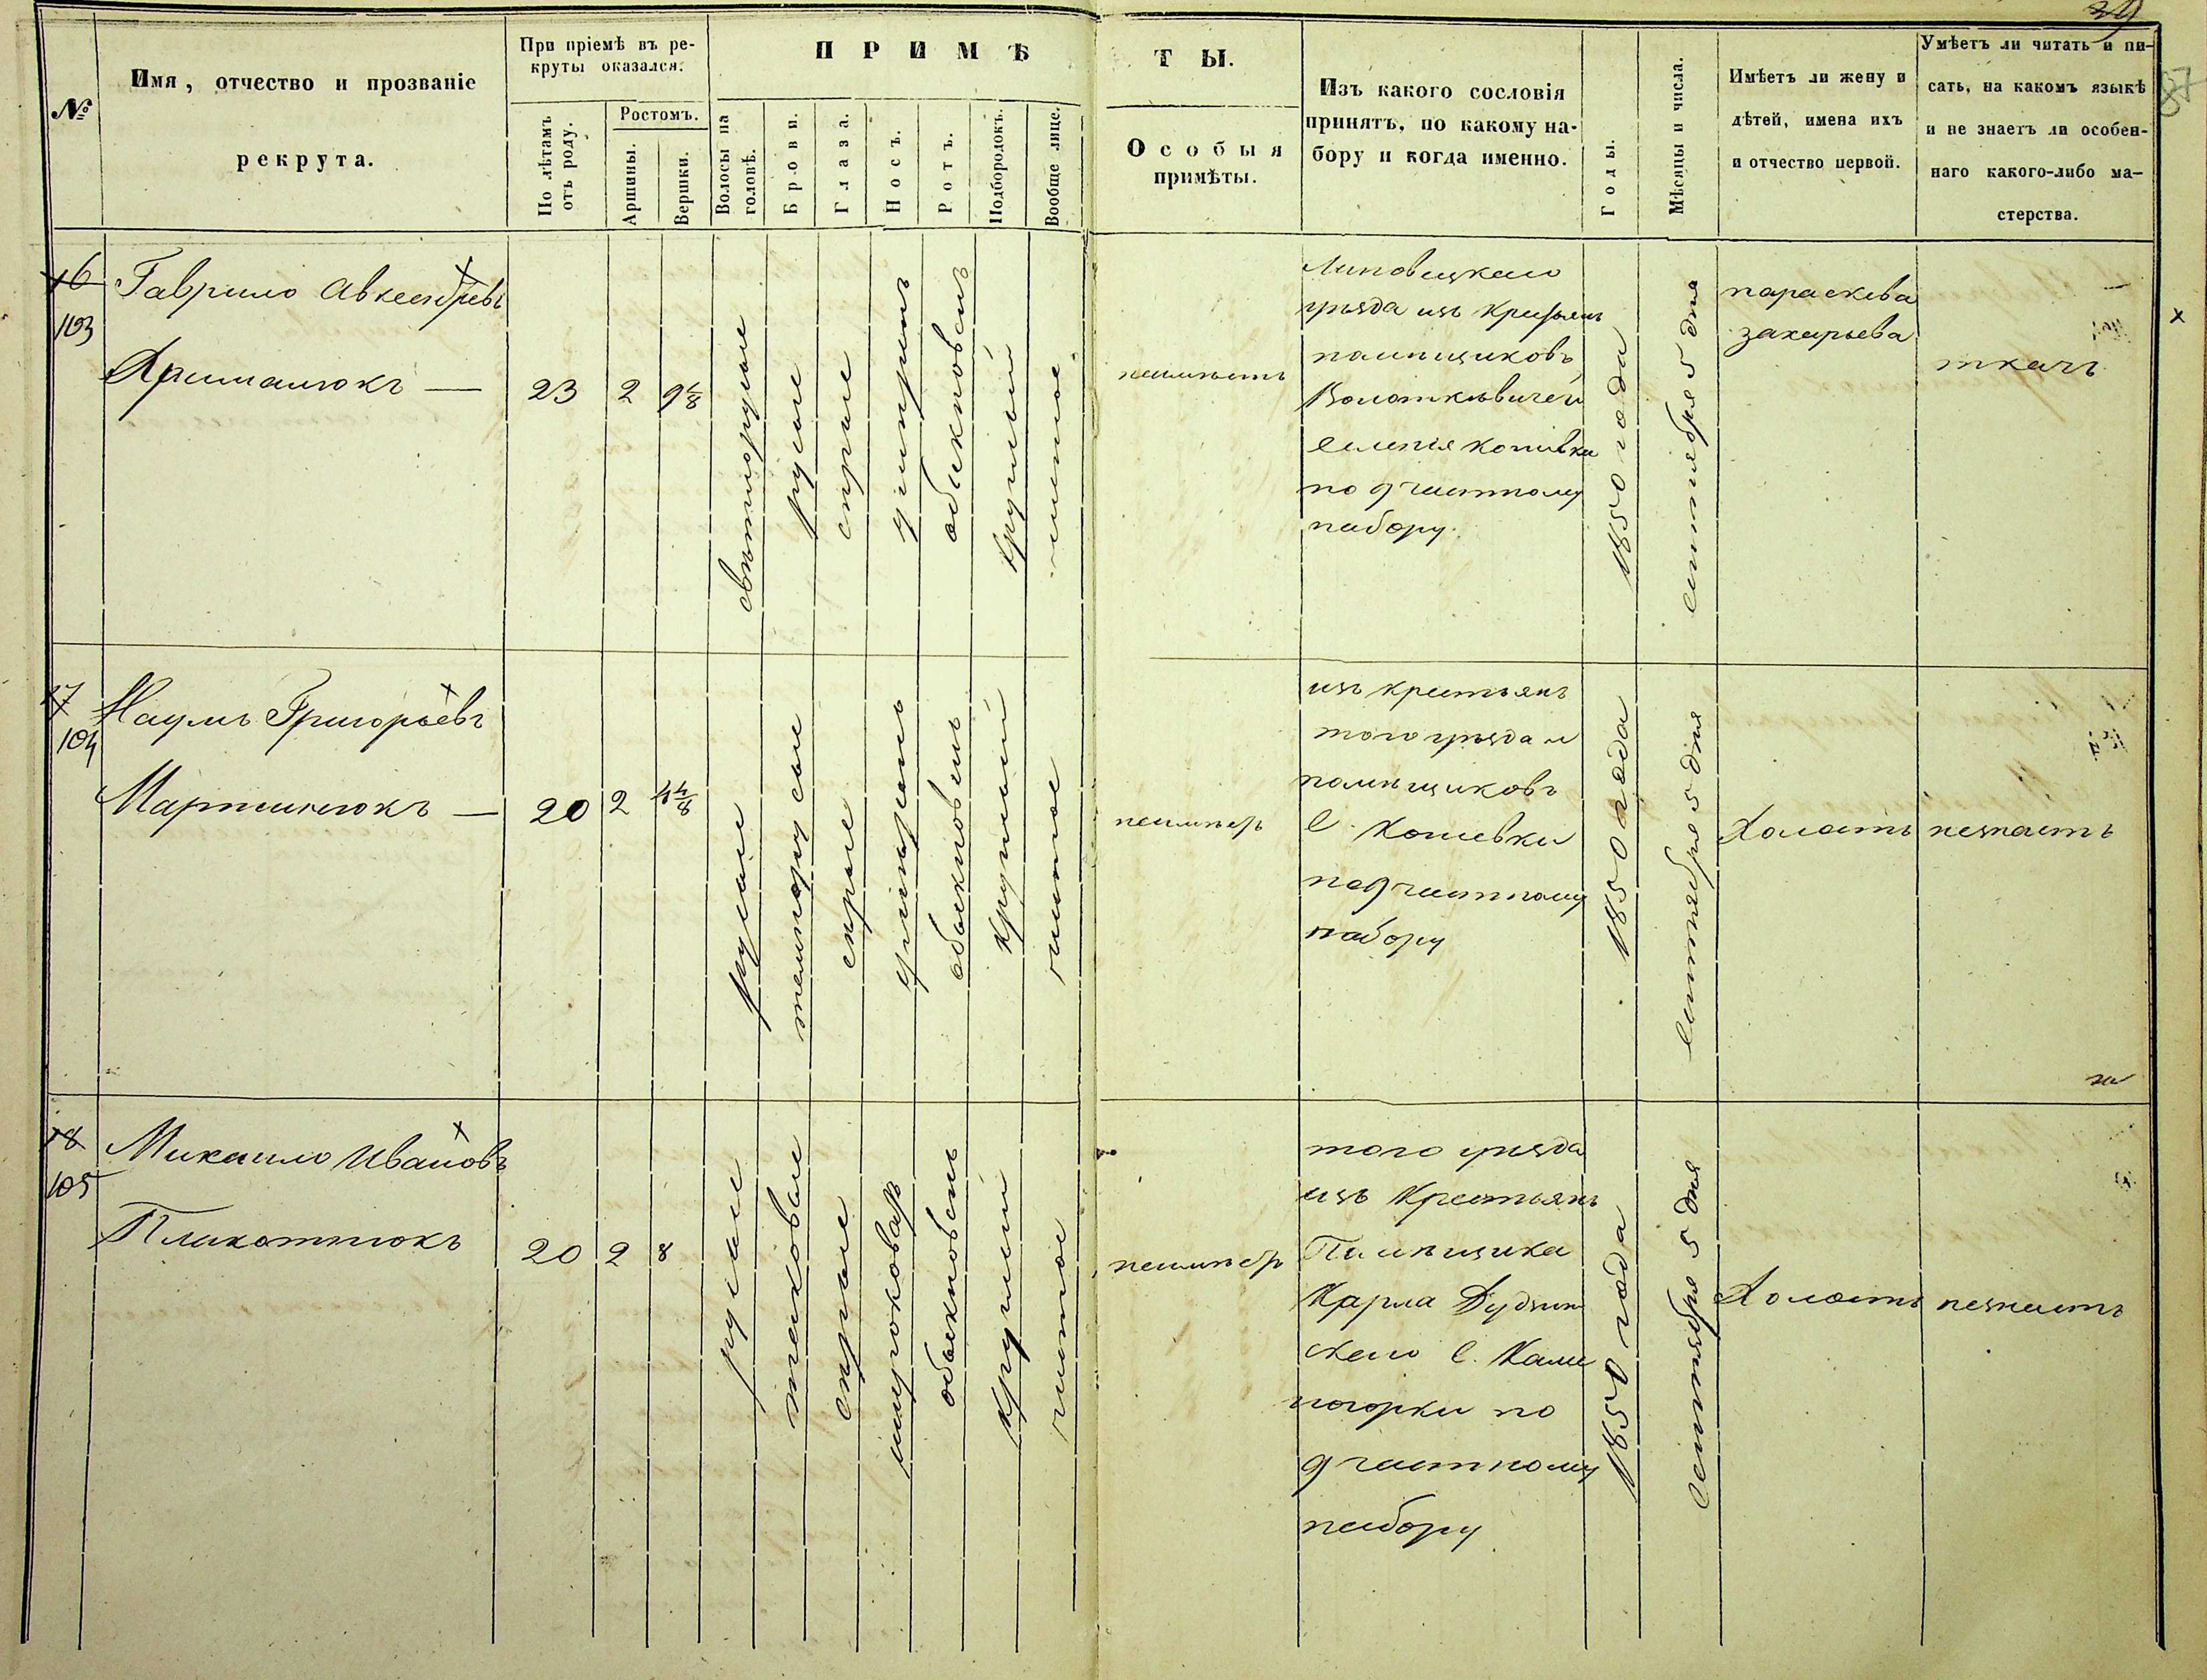 39
87
№
Имя, отчество и прозваніе
рекрута.
При пріемѣ въ ре-
круты оказался:
По лѣтамъ
отъ роду.
Ростомъ.
Аршины.
Вершки.
ПРИМѢ
Волосы на
головѣ.
Брови.
Глаза.
Носъ.
Ротъ.
Подбородокъ.
Вообще лице.
ТЫ.
Особыя
примѣты.
Изъ какого сословія
принятъ, по какому на-
бору и когда именно.
Годы.
Мѣсяцы и числа.
Имѣетъ ли жену и
дѣтей, имена ихъ
и отчество первой.
Умѣетъ ли читать и пи-
сать, на какомъ языкѣ
и не знаетъ ли особен-
наго какого-либо ма-
стерства.
16
103
Гаврило
23
2
9 4/8
свѣтлорусые
русые
сѣрые
умѣренъ
обыкновенъ
круглый
чистое
неимѣетъ
Липовецкаго
уѣзда изъ крестьянъ
помѣщиковъ
по 9 частному
набору.
1850 года
сентября 5 дня
параскева
захарьева
ткачъ
17
104
Наумъ Григорьевъ
Мартынюкъ
20
2
4 4/8
русые
темнорусые
сѣрые
умѣренъ
обыкновенъ
круглый
чистое
неимѣетъ
изъ крестьянъ
того уѣзда и
помѣщиковъ
с. Кошевки
по 9 частному
набору
1850 года
сентября 5 дня
Холостъ
незнаетъ
18
105
Михаило Ивановъ
Плахотнюкъ
20
2
8
русые
таковые
сѣрые
широковатъ
обыкновенъ
круглый
чистое
неимѣетъ
того уѣзда
изъ Крестьянъ
Помѣщика
Карла
скаго с. Каме
ногорки по
9 частному
набору
1850 года
Сентября 5 дня
Холостъ
незнаетъ